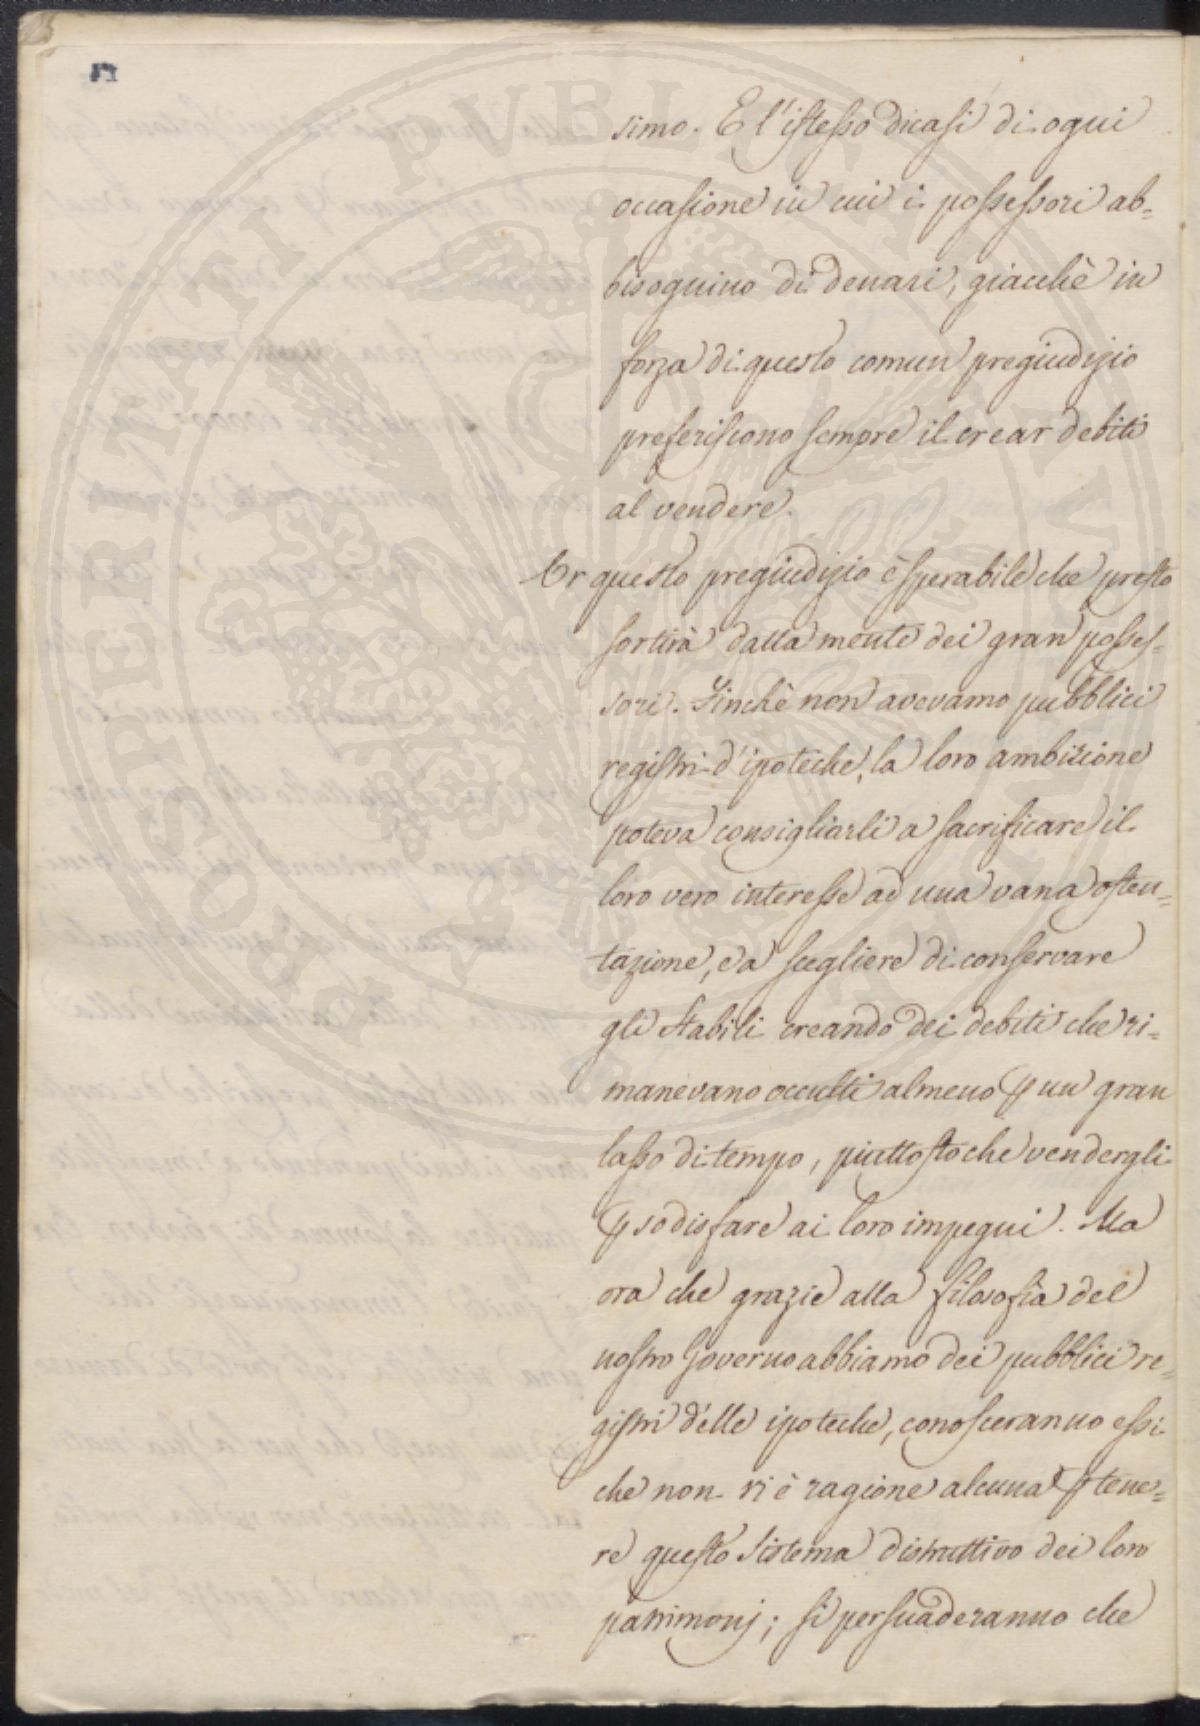 simo. E l'istesso dicasi di ogni
occasione in cui i possessori ab=
bisognino di denari, giacchè in
forza di questo comun pregiudizio
preferiscono sempre il crear debiti
al vendere.
Or questo pregiudizio è sperabile che presto
sortirà dalla mente dei gran posses=
sori. Finchè non avevamo pubblici
registri d'ipoteche, la loro ambizione
poteva consigliarli a sacrificare il
loro vero interesse ad una vana osten=
tazione, e a scegliere di conservare
gli stabili creando dei debiti che ri=
manevano occulti almeno p un gran
lasso di tempo, piuttosto che vendergli
p sodisfare ai loro impegni. Ma
ora che grazie alla filosofia del
nostro Governo abbiamo dei pubblici re=
gistri delle ipoteche, conosceranno essi
che non vi è ragione alcuna p tene=
re questo sistema distruttivo dei loro
patrimonj; si persuaderanno che
PROSPERITATI PVBLICAE